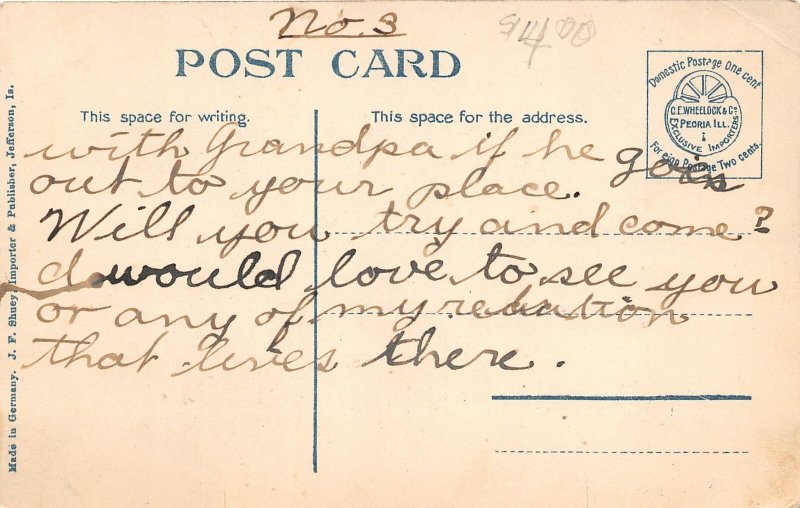 No. 3
9400
POST CARD
This space for writing.
This space for the address.
Domestic Postage One cent
C.E. WHEELOCK & Co
PEORIA ILL.
EXCLUSIVE IMPORTERS
Foreign Postage Two cents.
with Grandpa if he gois
out to your place.
Will you try and come?
I would love to see you
or any of my relation
that lives there.
Made in Germany. J. F. Shuey, Importer & Publisher, Jefferson, Ia.